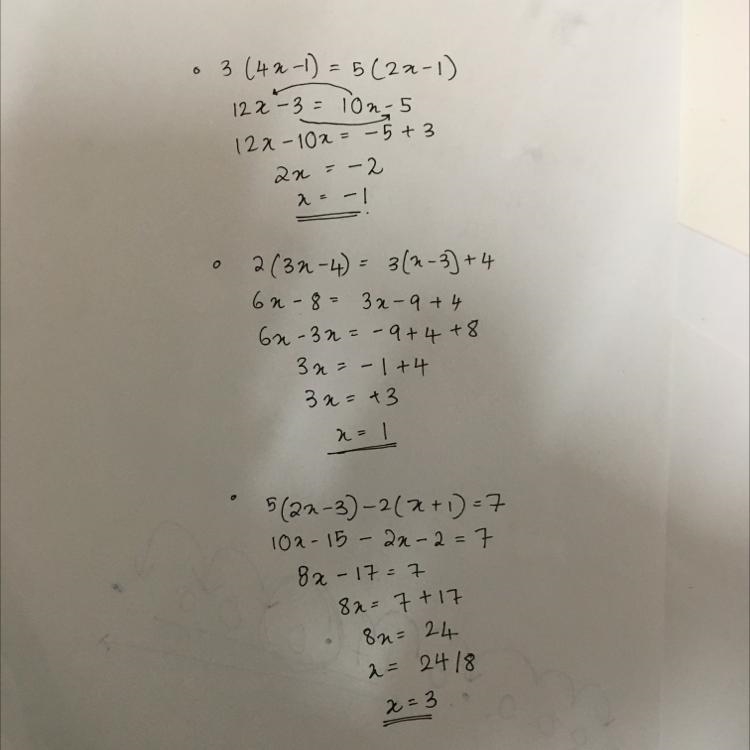 3 (4x-1) = 5 (2x-1)
12x - 3 = 10x - 5
12x - 10x = -5 + 3
2x = -2
x = -1
2(3x-4) = 3(x-3)+4
6x - 8 = 3x - 9 + 4
6x - 3x = -9 + 4 + 8
3x = -1 + 4
3x = +3
x = 1
5(2x-3) - 2(x+1) = 7
10x - 15 - 2x - 2 = 7
8x - 17 = 7
8x = 7 + 17
8x = 24
x = 24/8
x = 3